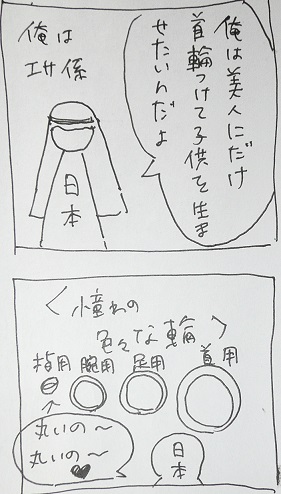 俺は美人にだけ
首輪つけて子供を生ま
せたいんだよ
俺は
エサ係
日本
〈憧れの
色々な輪〉
指用
腕用
足用
首用
丸いの～
丸いの～♥
日本